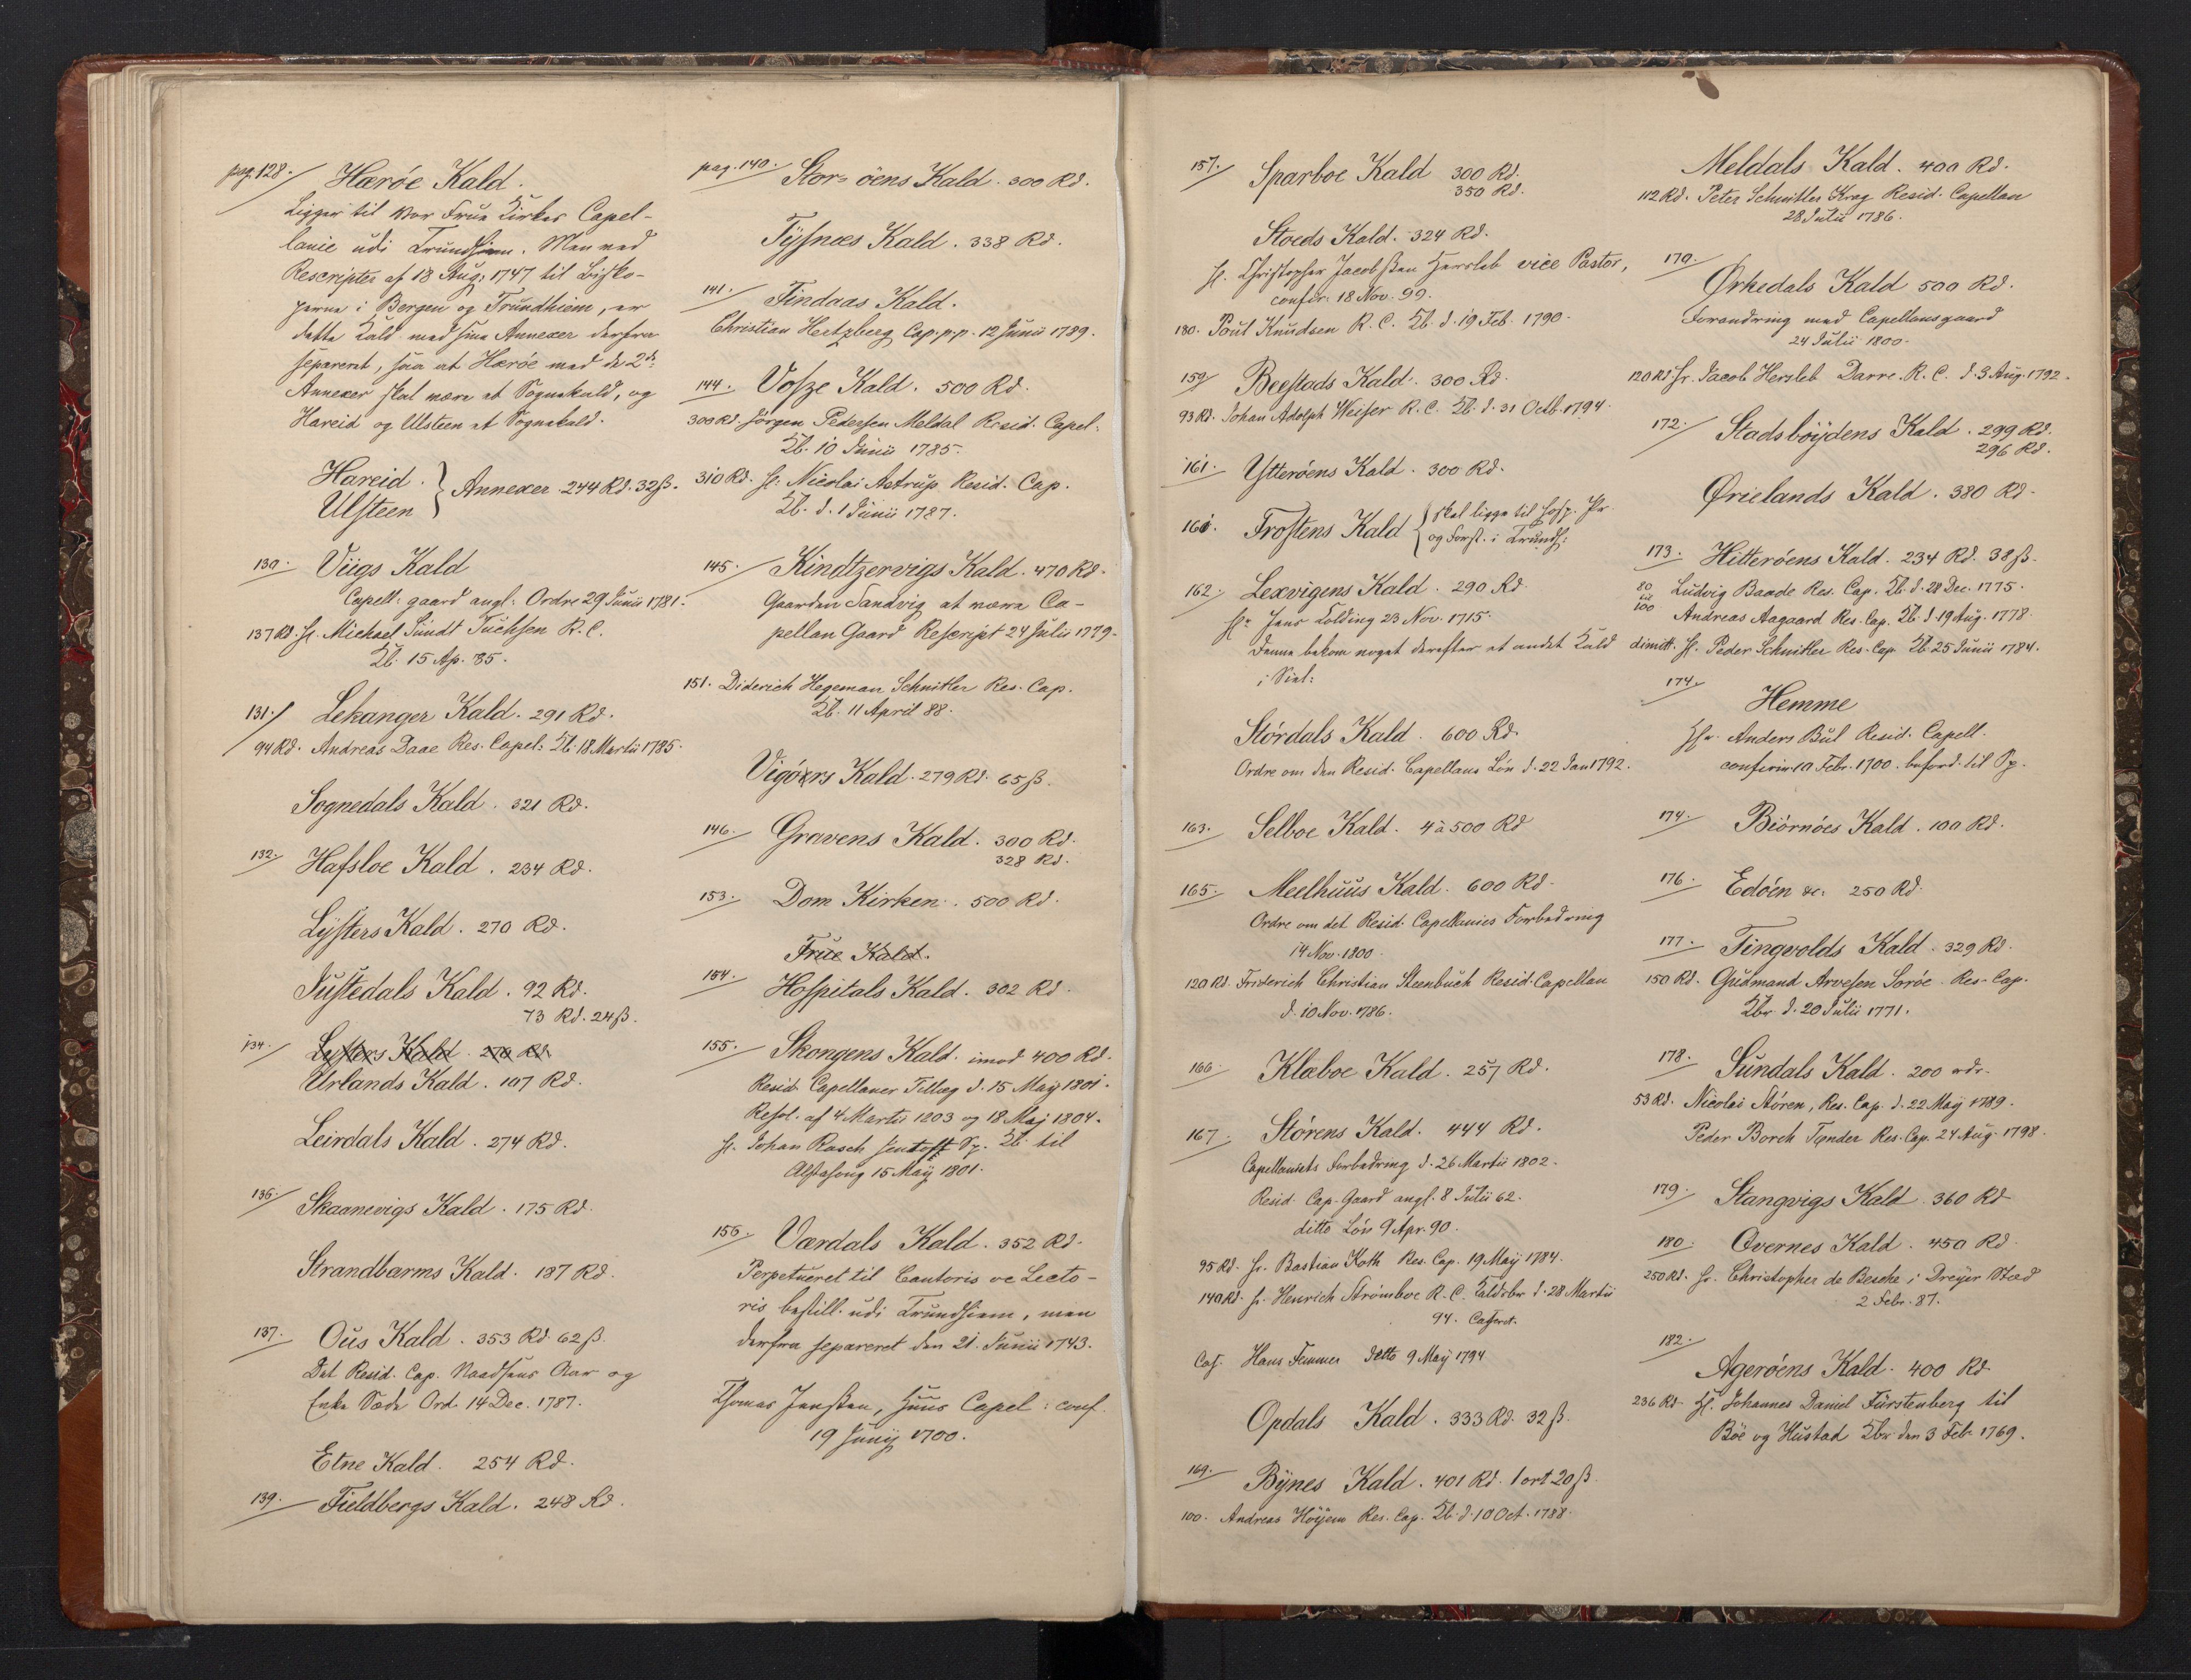 pag. 128. Hærøe Kald.
Ligger til Vor Frue Kirkes Capel-
lanie udi Trundhiem. Men ved
Rescripter af 18 Aug: 1747 til Bisko-
perne i Bergen og Trundhiem, er
dette Kald med sine Annexer derfra
separeret, saa at Hærøe med de 2de
Annexer skal være et Sognekald, og
Hareid og Ulsteen et Sognekald.
Hareid.
Ulsteen } Annexer. 244 Rd. 32 ß.
130. Viigs Kald
Capell: gaard angl: Ordre 29 Junii 1781.
137 Rd. H. Michael Sundt Tuchsen R. C.
Kb. 15 Ap. 85.
131. Lekanger Kald. 291 Rd.
94 Rd. Andreas Daae Res. Capel: Kb. 18 Martii 1785.
Sognedals Kald. 321 Rd.
132. Hafsloe Kald. 234 Rd.
Lysters Kald. 270 Rd.
Justedals Kald. 92 Rd.
73 Rd. 24 ß.
134. Lysters Kald. 270 Rd.
Urlands Kald. 107 Rd.
Leirdals Kald. 274 Rd.
136. Skaanevigs Kald. 175 Rd.
Strandbarms Kald. 187 Rd.
137. Ous Kald. 353 Rd. 62 ß.
Det Resid. Cap. Naadsens Aar og
Enke Sæde Ord. 14 Dec. 1787.
Etne Kald. 254 Rd.
139. Fieldbergs Kald. 248 Rd.
pag. 140. Stor-öens Kald. 300 Rd.
Tysnæs Kald. 338 Rd.
141. Findaas Kald.
Christian Hertzberg Cap. p. p. 12 Junii 1789.
144. Vosze Kald. 500 Rd.
300 Rd. Jörgen Pedersen Meldal Resid. Capel.
Kb. 10 Junii 1785.
310 Rd. H. Nicolai Astrup Resid. Cap.
Kb. d. 1 Junii 1787.
145. Kindtzervigs Kald. 470 Rd.
Gaarden Sandvig at være Ca-
pellan Gaard Rescript 24 Julii 1779.
151. Diderich Hegeman Schnitler Res. Cap.
Kb. 11 April 88.
Vigöers Kald. 279 Rd. 65 ß.
146. Gravens Kald. 300 Rd.
328 Rd.
153. Dom Kirken. 500 Rd.
Frue Kald.
154. Hospitals Kald. 302 Rd.
155. Skongens Kald. imod 400 Rd.
Resid. Capellaner Tillæg d. 15 May 1801.
Resol. af 4 Martii 1803 og 18 Maj 1804.
H. Johan Rasch Kb. til
Alstahoug 15 May 1801.
156. Værdals Kald. 352 Rd.
Perpetueret til Cantoris oc Lecto-
ris bestill. udi Trundhiem, men
derfra separeret den 21. Junii 1743.
Thomas Jenssen, Huus Capel: conf.
19 Junij 1700.
157. Sparboe Kald 300 Rd.
350 Rd.
Stoeds Kald. 324 Rd.
H. Christopher Jacobssen Hersleb vice Pastor,
confir. 18 Nov. 99.
180. Poul Knudsen R. C. Kb. d. 19 Feb. 1790.
159. Beestads Kald. 300 Rd.
93 Rd. Johan Adolph Weiser R. C. Kb. d. 31 Octb. 1794.
161. Ytteröens Kald. 300 Rd.
161. Frostens Kald { skal ligge til Hosp. Pr.
og Forst. i Trundh:
162. Lexvigens Kald. 290 Rd.
Hr. Jens Kolding 23 Nov. 1715.
Denne bekom noget derefter et andet Kald
i Siel:
Stördals Kald. 600 Rd.
Ordre om den Resid. Capellans Lön d. 22 Jan 1792.
163. Selboe Kald. 4 à 500 Rd
165. Meelhuus Kald. 600 Rd.
Ordre om det Resid. Capellanies Forbedring
14 Nov. 1800.
120 Rd. Friderich Christian Steenbuch Resid. Capellan
d. 10 Nov. 1786.
166. Klæboe Kald. 257 Rd.
167. Störens Kald. 444 Rd.
Capellaniets Forbedring d. 26 Martii 1802.
Resid. Cap. Gaard angl. 8 Julii 62.
ditto Lön 9 Apr. 90.
95 Rd. Hr. Bastian Koth Res. Cap. 19 May 1784.
140 Rd. H. Henrich Strömboe R. C. Kaldsbr d. 28 Martii
94. Casseret.
Cas. Hans Femmer ditto 9 May 1794
Opdals Kald. 333 Rd. 32 ß.
169. Bynes Kald. 401 Rd. 1 ort 20 ß.
100. Andreas Höyem Res. Cap. Kb. d. 10 Oct. 1788.
Meldals Kald. 400 Rd.
112 Rd. Peter Schnitler Krag Resid. Capellan
28 Julii 1786.
170. Ørkedals Kald 500 Rd.
Forandring med Capellansgaard
24 Julii 1800.
120 Rd Hr. Jacob Hersleb Darre. R. C. d. 3 Aug. 1792.
172. Stadsböydens Kald. 299 Rd.
296 Rd.
Ørielands Kald. 380 Rd.
173. Hitteröens Kald. 234 Rd. 38 ß.
80 til 100 Ludvig Baade Res. Cap. Kb. d. 28 Dec. 1775.
Andreas Aagaard Res. Cap. Kb. d. 19 Aug. 1778.
dimitt. H. Peder Schnitler Res. Cap. Kb. 25 Junii 1784.
174. Hemme
Hr. Anders Bul Resid. Capell.
confirm. 10 Febr. 1700. beford. til Sp.
174. Biörnöes Kald. 100 Rd.
176. Edöen &c. 250 Rd.
177. Tingvolds Kald. 329 Rd.
150 Rd. Gudmand Arvesen Soröe Res. Cap.
Kbr d. 20 Julii 1771.
178. Sundals Kald. 200 rdr.
53 Rd. Nicolai Stören, Res. Cap. d. 22 May 1789.
Peder Borch Tynder Res. Cap. 24 Aug. 1798.
179. Stangvigs Kald. 360 Rd
180. Qvernes Kald. 450 Rd.
250 Rd. Hr. Christopher de Besche i Dreyer Sted
2 Febr. 87.
182. Ageröens Kald. 400 Rd.
236 Rd. H. Johannes Daniel Fürstenberg til
Böe og Hustad Kbr den 3 Feb. 1769.